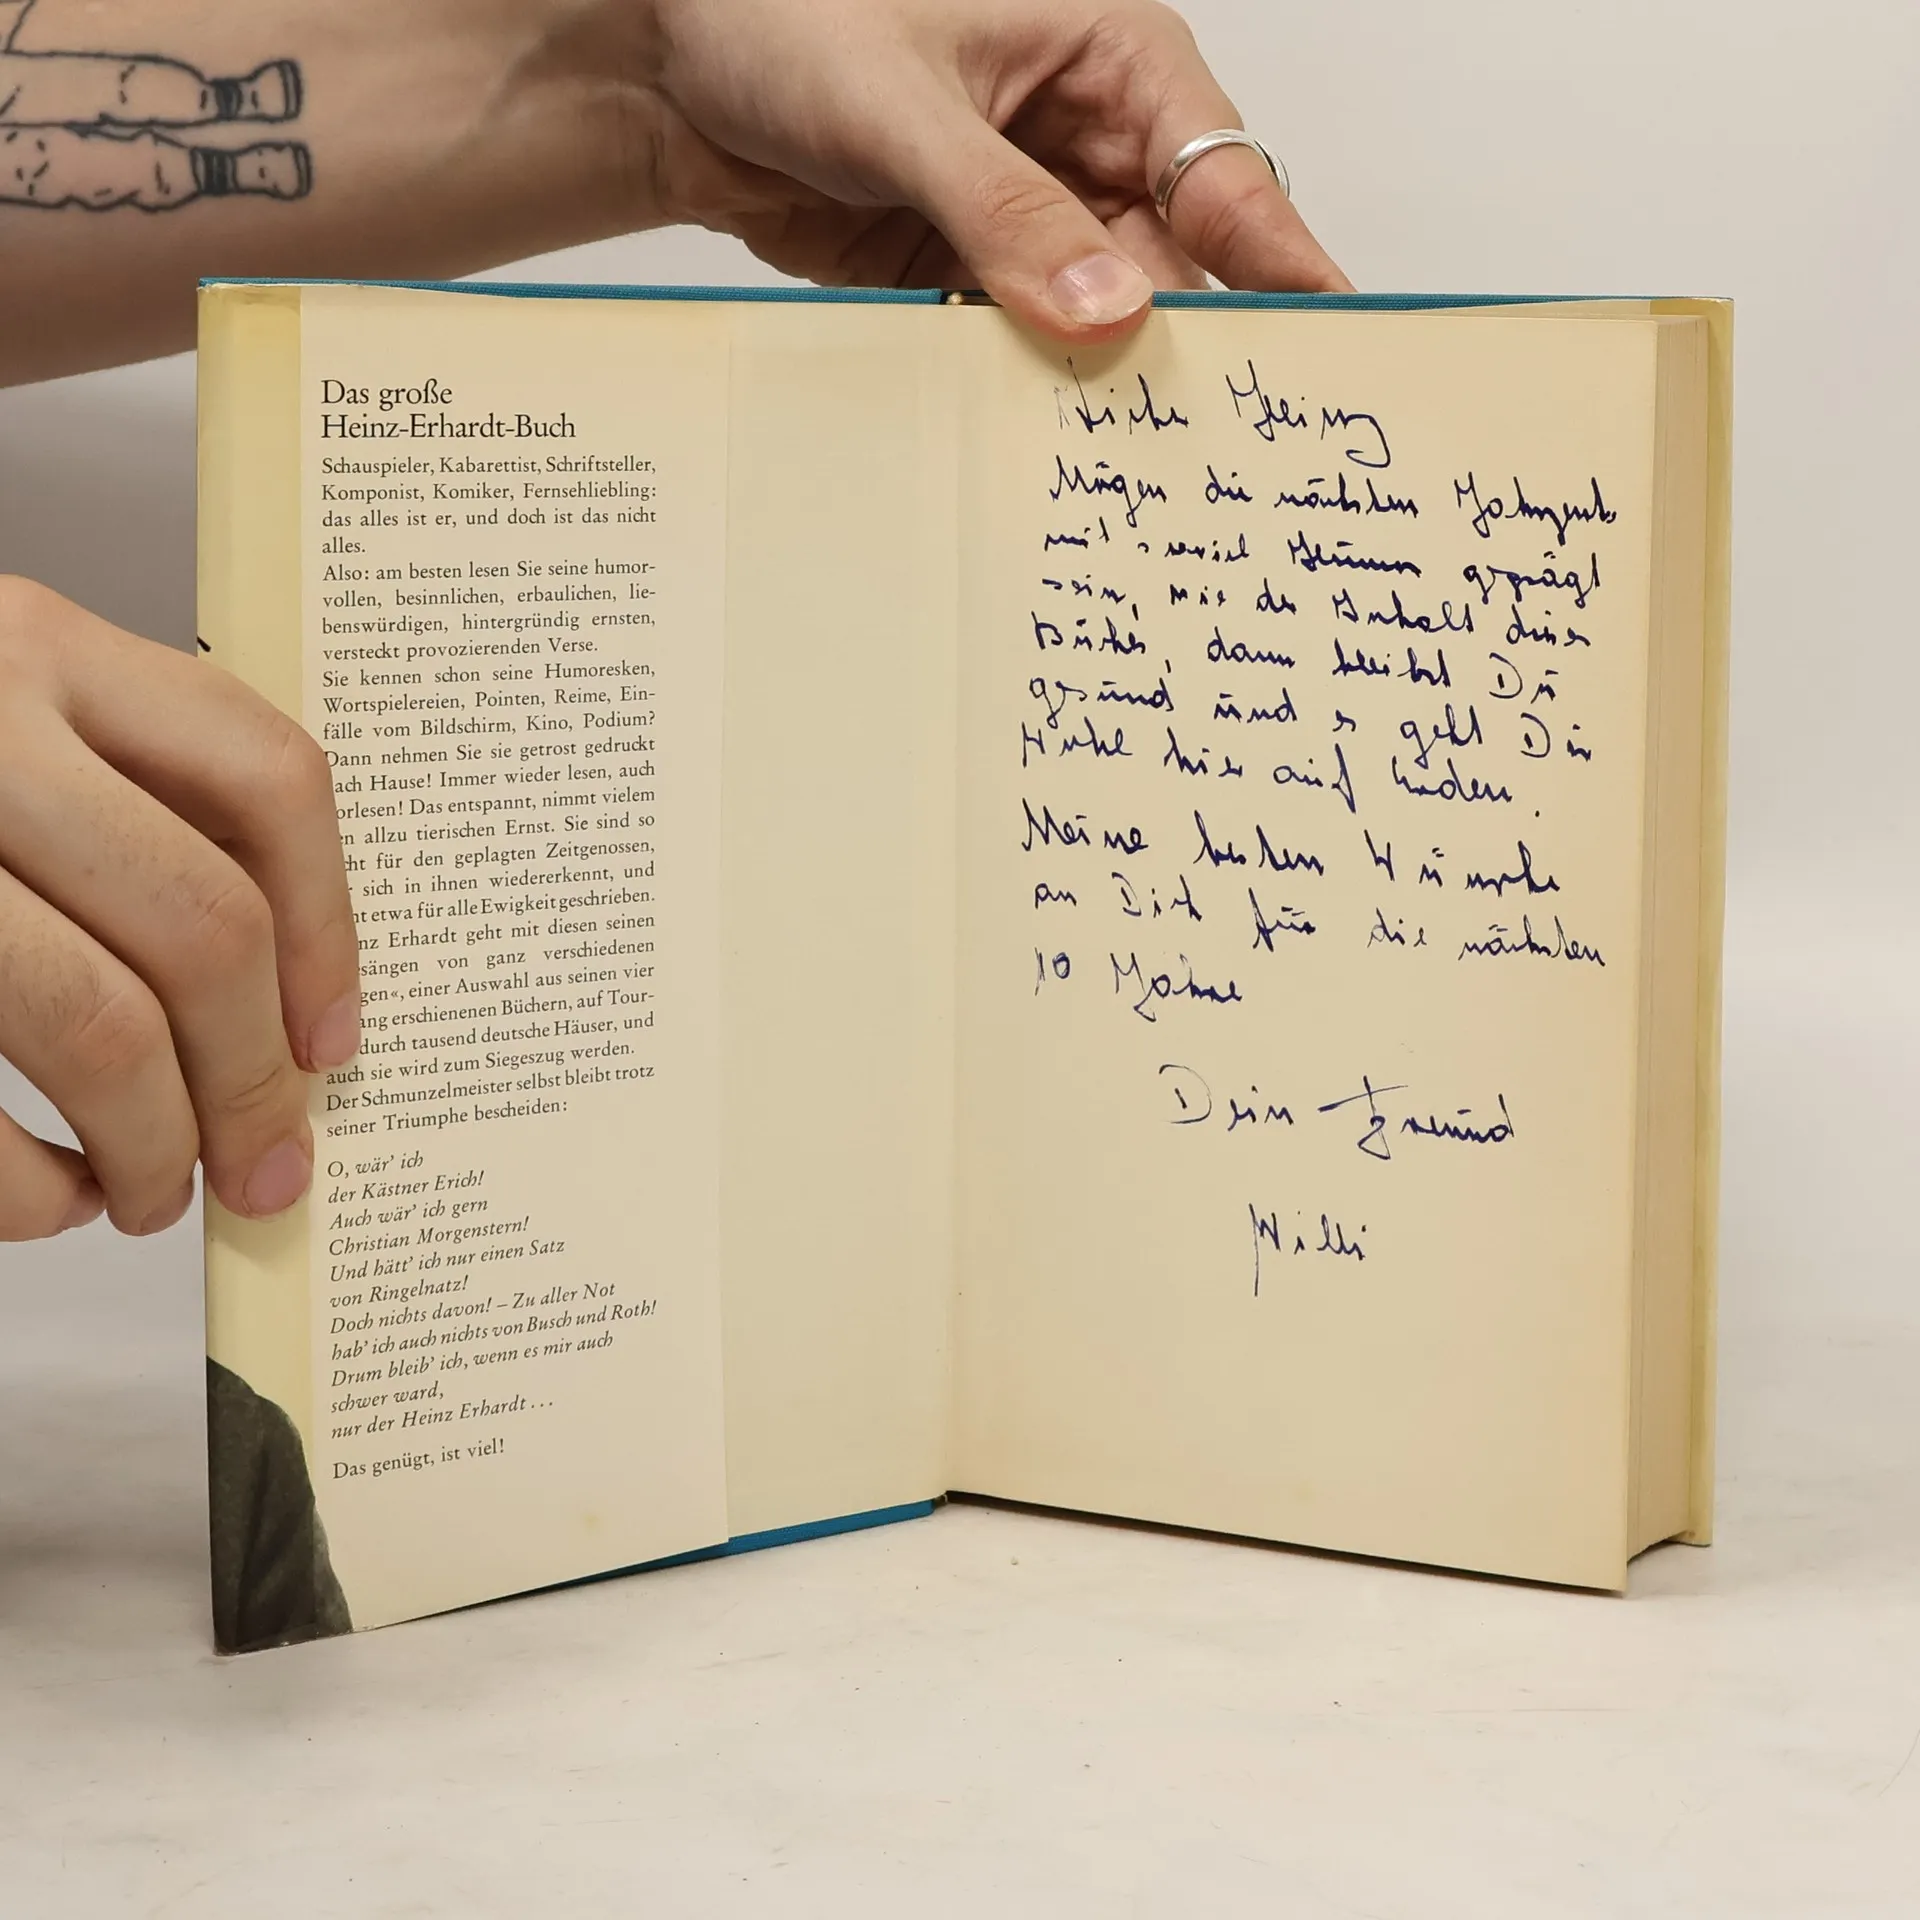 Das große
Heinz-Erhardt-Buch
Schauspieler, Kabarettist, Schriftsteller,
Komponist, Komiker, Fernsehliebling:
das alles ist er, und doch ist das nicht
alles.
Also: am besten lesen Sie seine humor-
vollen, besinnlichen, erbaulichen, lie-
benswürdigen, hintergründig ernsten,
versteckt provozierenden Verse.
Sie kennen schon seine Humoresken,
Wortspielereien, Pointen, Reime, Ein-
fälle vom Bildschirm, Kino, Podium?
Dann nehmen Sie sie getrost gedruckt
ach Hause! Immer wieder lesen, auch
orlesen! Das entspannt, nimmt vielem
en allzu tierischen Ernst. Sie sind so
cht für den geplagten Zeitgenossen,
sich in ihnen wiedererkennt, und
ht etwa für alle Ewigkeit geschrieben.
nz Erhardt geht mit diesen seinen
sängen von ganz verschiedenen
gen«, einer Auswahl aus seinen vier
ang erschienenen Büchern, auf Tour-
durch tausend deutsche Häuser, und
auch sie wird zum Siegeszug werden.
Der Schmunzelmeister selbst bleibt trotz
seiner Triumphe bescheiden:
O, wär' ich
der Kästner Erich!
Auch wär' ich gern
Christian Morgenstern!
Und hätt' ich nur einen Satz
von Ringelnatz!
Doch nichts davon! – Zu aller Not
hab' ich auch nichts von Busch und Roth!
Drum bleib' ich, wenn es mir auch
schwer ward,
nur der Heinz Erhardt...
Das genügt, ist viel!
Lieber Heinz
Mögen die nächsten Jahrzent.
mit soviel Humor geprägt
sein, wie der Inhalt dieses
Buches, dann bleibst Du
gesund und es geht Dir
Wohl hier auf Erden.
Meine besten Wünsche
an Dich für die nächsten
10 Jahre
Dein Freund
Willi